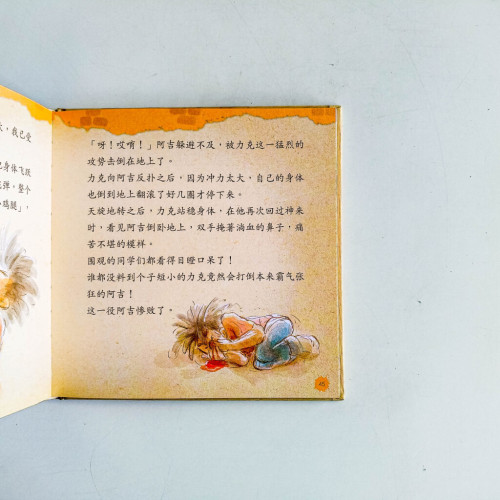 ，我已受
己身体飞跃
花弹，整个
小鸡腿」，
「呀！哎唷！」阿吉躲避不及，被力克这一猛烈的
攻势击倒在地上了。
力克向阿吉反扑之后，因为冲力太大，自己的身体
也倒到地上翻滚了好几圈才停下来。
天旋地转之后，力克站稳身体，在他再次回过神来
时，看见阿吉倒卧地上，双手掩著淌血的鼻子，痛
苦不堪的模样。
围观的同学们都看得目瞪口呆了！
谁都没料到个子短小的力克竟然会打倒本来霸气张
狂的阿吉！
这一役阿吉惨败了。
45